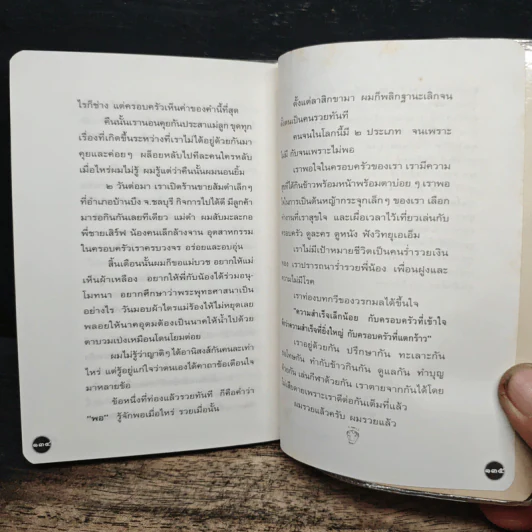 ไรก็ช่าง แต่ครอบครัวเห็นค่าของคำนี้ที่สุด
คืนนั้นเรานอนคุยกันประสาแม่ลูก ขุดทุก
เรื่องที่เกิดขึ้นระหว่างที่เราไม่ได้อยู่ด้วยกันมา
คุยและค่อยๆ ผล็อยหลับไปทีละคนใครหลับ
เมื่อไหร่ผมไม่รู้ ผมรู้แต่ว่าคืนนั้นผมนอนยิ้ม
๒ วันต่อมา เราเปิดร้านขายส้มตำเล็กๆ
ที่อำเภอบ้านบึง จ.ชลบุรี กิจการไปได้ดี มีลูกค้า
มารอกินกันเลยทีเดียว แม่ตำ ผมสับมะละกอ
พี่ชายเสิร์ฟ น้องคนเล็กล้างจาน อุตสาหกรรม
ในครอบครัวเราครบวงจร อร่อยและอบอุ่น
สิ้นเดือนนั้นผมก็ขอแม่บวช อยากให้แม่
เห็นผ้าเหลือง อยากให้พี่กับน้องได้ร่วมอนุ-
โมทนา อยากศึกษาว่าพระพุทธศาสนาเป็น
อย่างไร วันมอบผ้าไตรแม่ร้องไห้ไม่หยุดเลย
พลอยให้นาคอุดมต้องเป็นนาคให้น้ำไปด้วย
ตาบวมเป่งเหมือนโดนโยมต่อย
ผมไม่รู้ว่าญาติๆ ได้อานิสงส์กันคนละเท่า
ไหร่ แต่รู้อยู่แก่ใจว่าตนเองได้คาถาข้อเตือนใจ
มาหลายข้อ
ข้อหนึ่งที่ท่องแล้วรวยทันที ก็คือคำว่า
"พอ" รู้จักพอเมื่อไหร่ รวยเมื่อนั้น
๑๓๔
ตั้งแต่ลาสิกขามา ผมก็พลิกฐานะเลิกจน
เป็นคนรวยทันที
คนจนในโลกนี้มี ๒ ประเภท จนเพราะ
ไม่มี กับจนเพราะไม่พอ
เราพอใจในครอบครัวของเรา เรามีความ
สุขที่ได้กินข้าวพร้อมหน้าพร้อมตาบ่อยๆ เราพอ
ใจในการเป็นดินหญ้ากระจุกเล็กๆ ของเรา เลือก
ทำงานที่เราสุขใจ และเผื่อเวลาไว้เที่ยวเล่นกับ
ครอบครัว ดูละคร ดูหนัง ฟังวิทยุเอเอ็ม
เราไม่มีเป้าหมายชีวิตเป็นคนร่ำรวยเงิน
ทอง เราปรารถนาร่ำรวยพี่น้อง เพื่อนฝูงและ
ความไม่มีโรค
เราท่องบทกวีของวรกมลได้ขึ้นใจ
"ความสำเร็จเล็กน้อย กับครอบครัวที่เข้าใจ
ดีกว่าความสำเร็จที่ยิ่งใหญ่ กับครอบครัวที่แตกร้าว"
เราอยู่ด้วยกัน ปรึกษากัน ทะเลาะกัน
อภัยโทษกัน ทำกับข้าวกินกัน ดูแลกัน ทำบุญ
ด้วยกัน เล่นกีฬาด้วยกัน เราตายจากกันได้โดย
ไม่เสียดายเพราะเราดีต่อกันเต็มที่แล้ว
ผมรวยแล้วครับ ผมรวยแล้ว
๑๓๕